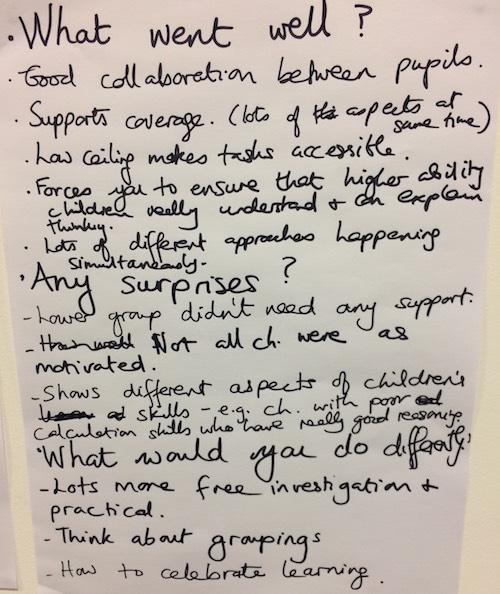 · What went well ?
· Good collaboration between pupils.
· Supports coverage. (lots of aspects at
same time)
· Low ceiling makes tasks accessible.
· Forces you to ensure that higher ability
children really understand + can explain
thinking.
· Lots of different approaches happening
simultaneously.
' Any surprises ?
- Lower group didn't need any support.
- Not all ch. were as
motivated.
- Shows different aspects of children's
skills - e.g. ch. with poor
calculation skills who have really good reasoning.
' What would you do differently?
- Lots more free investigation +
practical.
- Think about groupings
- How to celebrate learning.